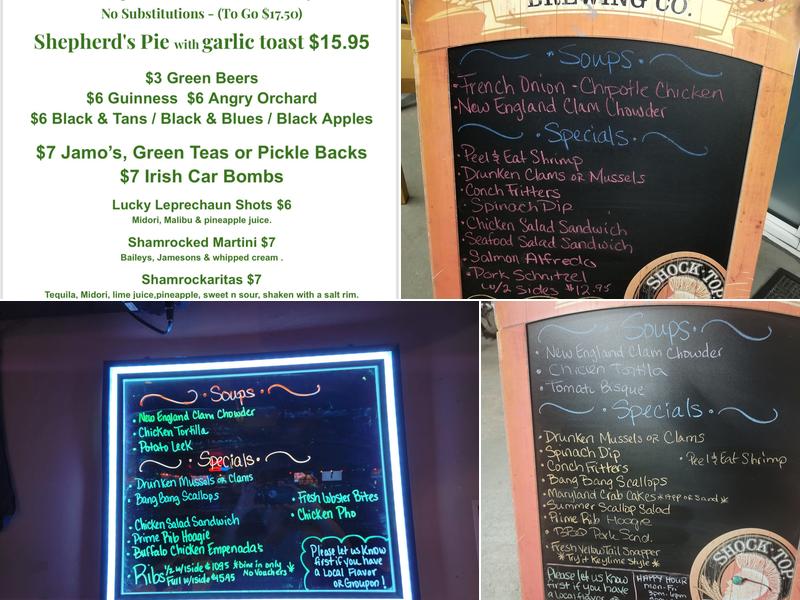 No Substitutions - (To Go $17.50)
Shepherd's Pie with garlic toast $15.95
$3 Green Beers
$6 Guinness $6 Angry Orchard
$6 Black & Tans / Black & Blues / Black Apples
$7 Jamo's, Green Teas or Pickle Backs
$7 Irish Car Bombs
Lucky Leprechaun Shots $6
Midori, Malibu & pineapple juice.
Shamrocked Martini $7
Baileys, Jamesons & whipped cream .
Shamrockaritas $7
Tequila, Midori, lime juice,pineapple, sweet n sour, shaken with a salt rim.
BREWING CO.
Soups
French Onion - Chipotle Chicken
New England Clam Chowder
Specials
Peel & Eat Shrimp
Drunken Clams or Mussels
Conch Fritters
Spinach Dip
Chicken Salad Sandwich
Seafood Salad Sandwich
Salmon Alfredo
Pork Schnitzel
w/2 sides $12.95
SHOCK TOP
Soups
New England Clam Chowder
Chicken Tortilla
Potato Leek
Specials
Drunken Mussels or Clams
Bang Bang Scallops
Fresh Lobster Bites
Chicken Pho
Chicken Salad Sandwich
Prime Rib Hoagie
Buffalo Chicken Empenada's
Ribs 1/2 w/1side
Full w/1side
*Dine in only
No Vouchers*
Please let us Know
first if you have
a Local Flavor
or Groupon!
Soups
New England Clam Chowder
Chicken Tortilla
Tomato Bisque
Specials
Drunken Mussels or Clams
Spinach Dip
Peel & Eat Shrimp
Conch Fritters
Bang Bang Scallops
Maryland Crab Cakes *App or Sand*
Summer Scallop Salad
Prime Rib Hoagie
BBQ Pork Sand.
Fresh Yellow Tail Snapper
*Try it Keylime Style*
SHOCK TOP
Please let us Know
first if you have
a local flavor
HAPPY HOUR
Mon-Fri
3pm-6pm